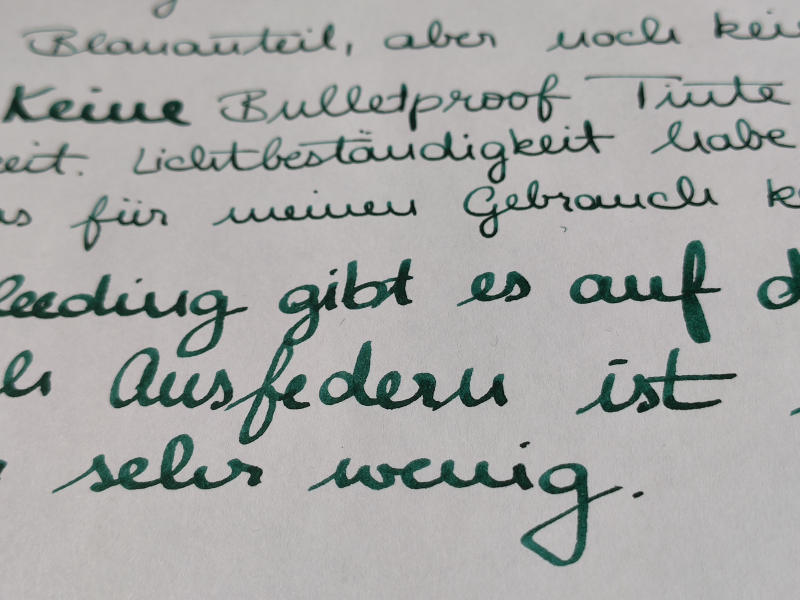 Blauanteil, aber noch kei
Keine Bulletproof Tinte
eit. Lichtbeständigkeit habe
s für meinen Gebrauch k
leeding gibt es auf d
Ausfedern ist
sehr wenig.